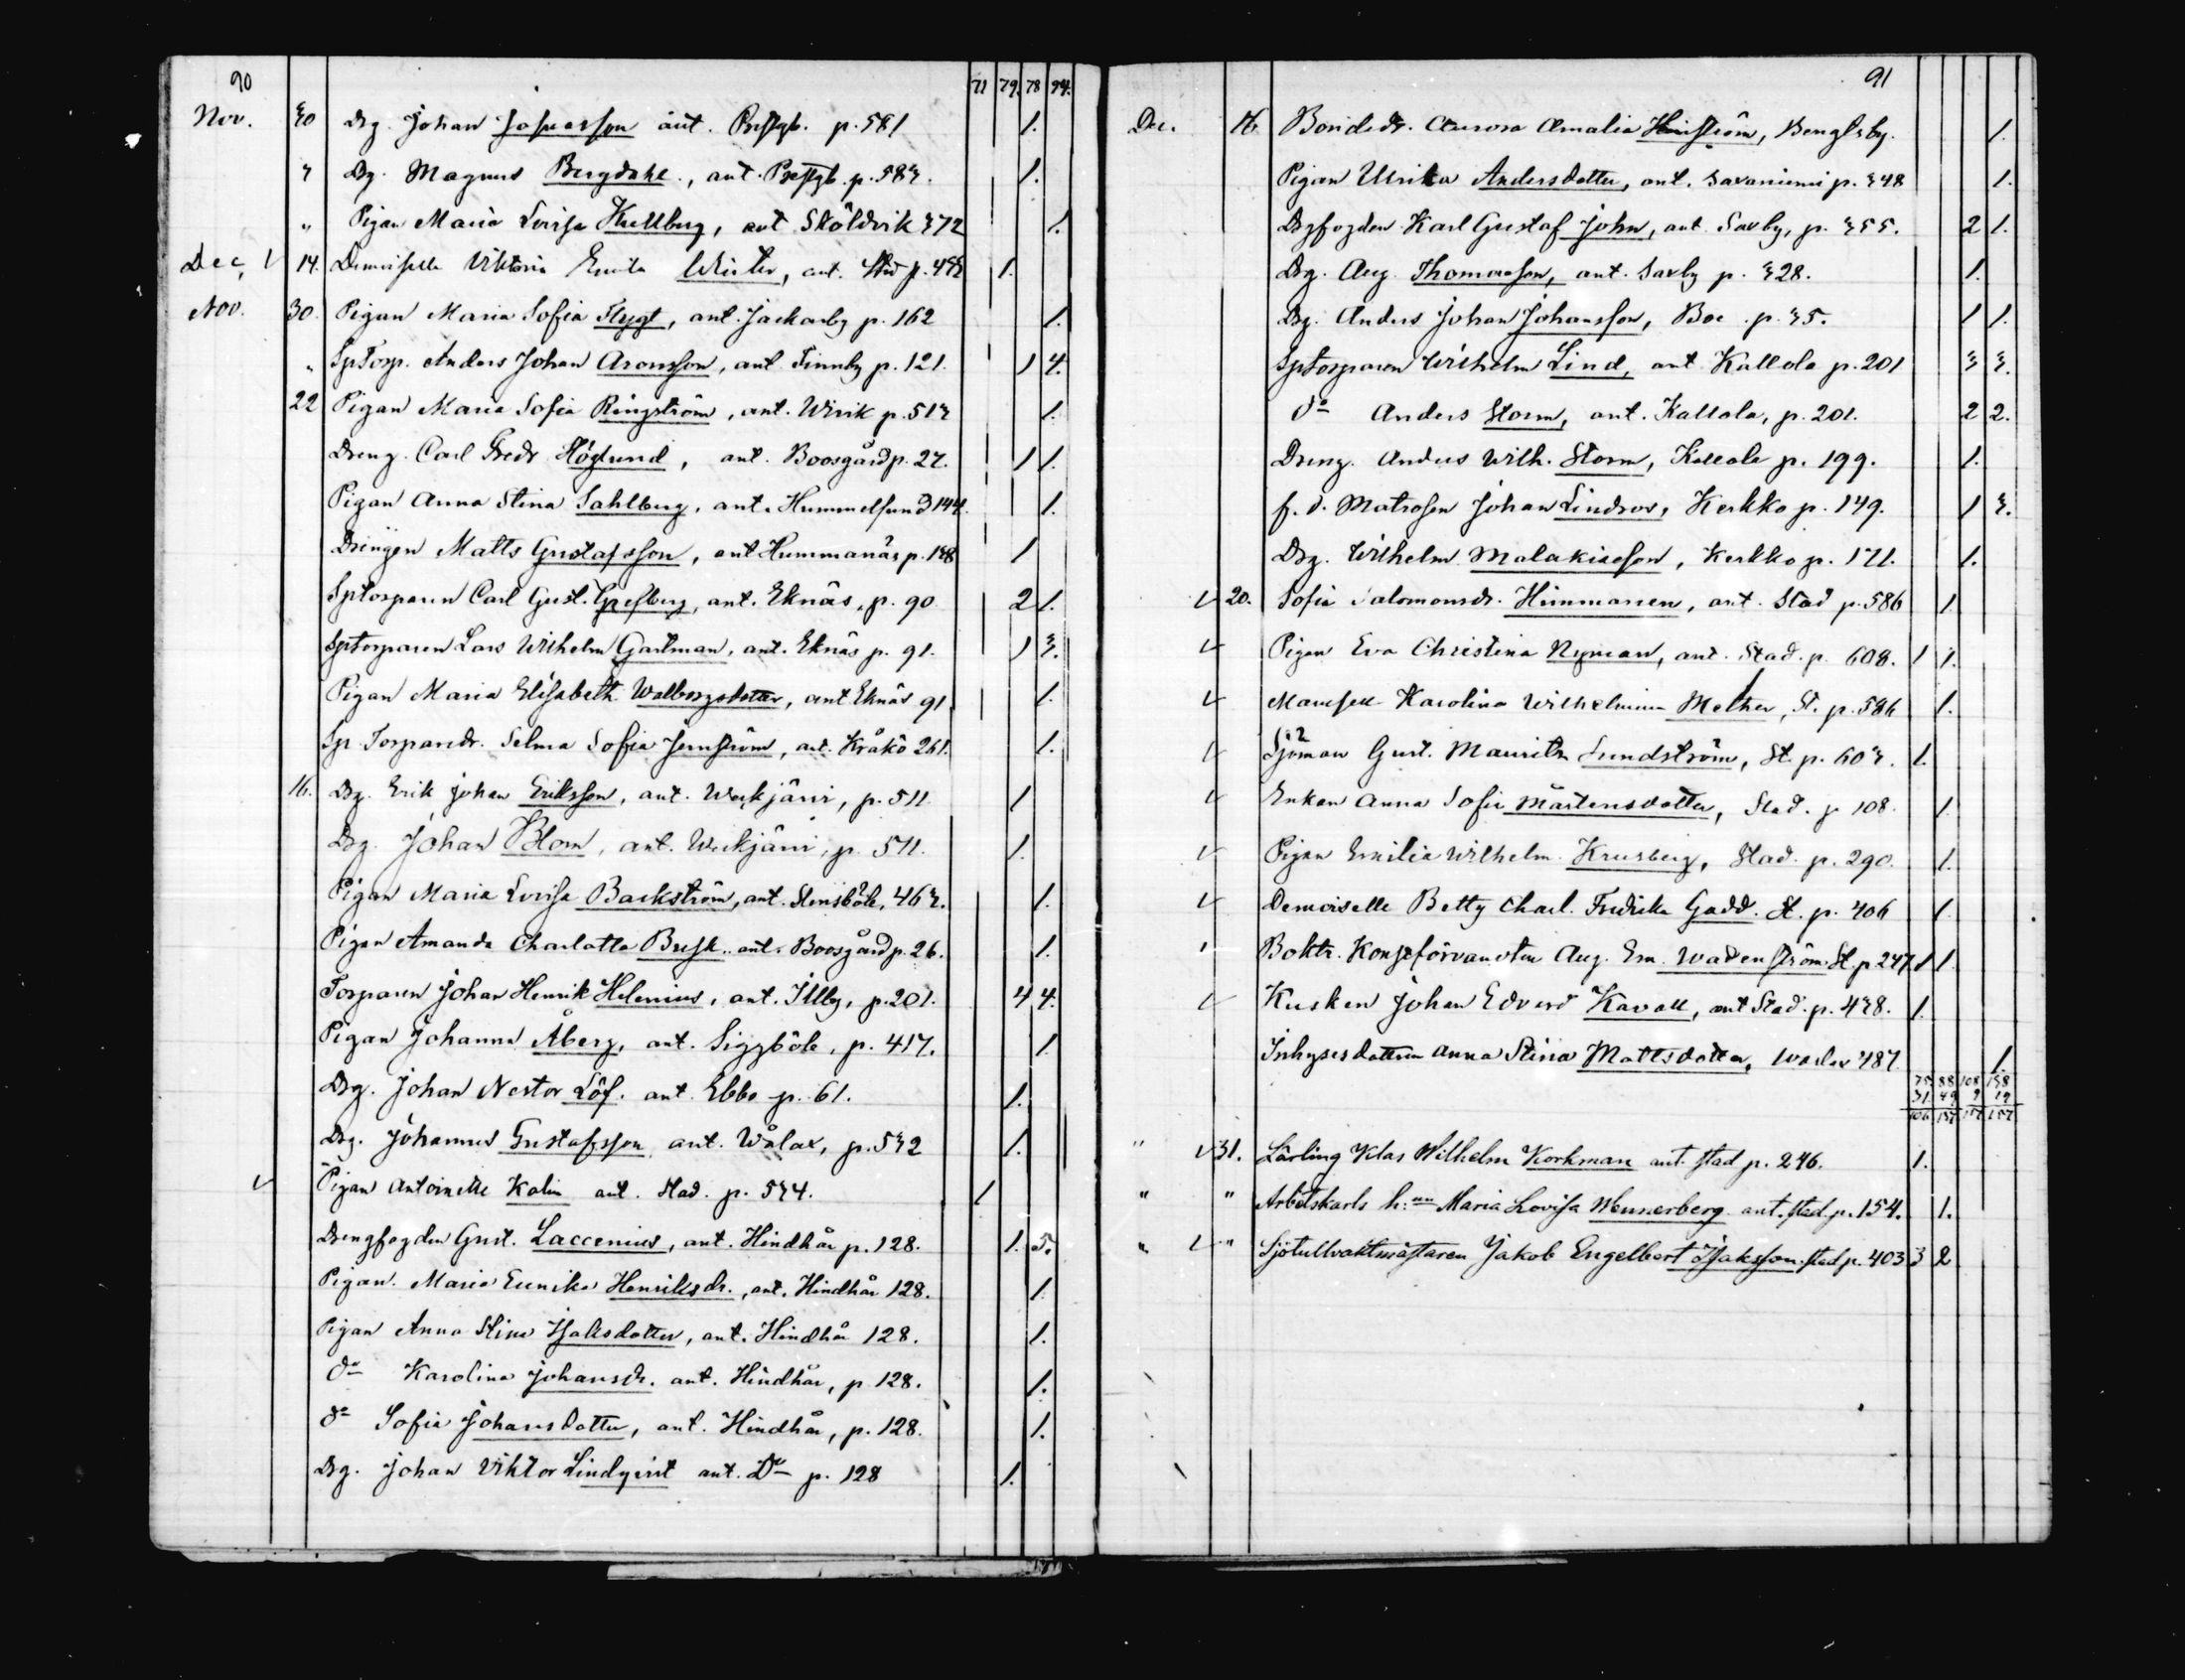 90
71 79. 78 94.
Nov. 30 Drg. Johan ant. Prestgb. p. 581 1.
" Drg. Magnus Bergdahl., ant. Prestgb. p. 583. 1.
" Pigan Maria Lovisa Kullberg, ant Sköldvik 372 1.
Dec, 14. Demoiselle Viktoria Emila Winter, ant. Stad p. 1.
Nov. 30. Pigan Maria Sofia Flygt, ant. Jackarby p. 162 1.
" SpTorp. Anders Johan Aronsson, ant Finnby p. 121. 1 4.
22 Pigan Maria Sofia Ringström, ant. Wirik p. 513 1.
Dreng. Carl Fredr Höglund, ant. Boosgård p. 27. 1 1.
Pigan Anna Stina Sahlberg, ant. Hummelsund 144. 1.
Drängen Matts Gustafsson, ant Hummanäs p. 138 1
Sptorparen Carl Gust. Grefberg, ant. Eknäs, p. 90 2 1.
Sptorparen Lars Wilhelm Gartman, ant. Eknäs p. 91. 1 3.
Pigan Maria Elisabeth Walborgsdotter, ant Eknäs 91 1.
Sp. Torpardr. Selma Sofia Jernström, ant. Kråkö 261. 1.
16. Drg. Erik Johan Eriksson, ant. Weckjärvi, p. 511 1
Drg. Johan Blom, ant. Weckjärvi, p. 511. 1.
Pigan Maria Lovisa Backström, ant. Stensböle, 463. 1.
Pigan Amanda Charlotta Brusk.. ant. Boosgård p. 26. 1.
Torparen Johan Henrik Helenius, ant. Illby, p. 201. 4 4.
Pigan Johanna Åberg, ant. Siggböle, p. 417. 1
Drg. Johan Nestor Löf. ant. Ebbo p. 61. 1.
Drg. Johannes Gustafsson, ant. Wålax, p. 532 1.
Pigan Antoinette Kalin ant. Stad. p. 534. 1
Drengfogden Gust. Laccenius, ant. Hindhår p. 128. 1. 5.
Pigan. Maria Eunika Henriksdr., ant. Hindhår 128. 1
Pigan Anna Stina Isaksdotter, ant. Hindhår 128. 1.
do Karolina Johansdr. ant. Hindhår, p 128. 1.
do Sofia Johansdotter, ant. Hindhår, p. 128. 1.
Drg. Johan Viktor Lindqvist ant. Do p. 128 1.
91
Dec. 16. Bondedr. Aurora Amalia, Bengtsby. 1.
Pigan Ulrika Andersdotter, ant. Savaniemi p. 348 1.
Drgfogden Karl Gustaf John, ant. Saxby, p. 355. 2 1.
Drg. Aug. Thomasson, ant. Saxby p. 328. 1.
Drg. Anders Johan Johansson, Boe p. 35. 1 1.
Sptorparen Wilhelm Lind, ant Kallola p. 201 3 3.
do Anders Storm, ant. Kallola, p. 201. 2 2.
Dreng. Anders Wilh. Storm, Kallola p. 199. 1.
f. d. Matrosen Johan Lindros, Kerkko p. 149. 1 3.
Drg. Wilhelm Malakiasson, Kerkko p. 171. 1.
20. Sofia Salomonsdr. Himmanen, ant. Stad p. 586 1.
Pigan Eva Christina Nyman, ant. Stad. p. 608. 1 1.
Mamsell Karolina Wilhelmina Mether, St. p. 586 1.
Sjöman Gust. Mauritz Sundström, St. p. 603. 1.
Enkan Anna Sofia Mårtensdotter, Stad. p 108. 1.
Pigan Emilia Wilhelm. Krusberg, Stad. p. 290. 1.
Demoiselle Betty Charl. Fredrika Gadd. St. p. 406 1.
Boktr. Konstförvandten Aug. Em. Wadenström. St. p 247 1 1
Kusken Johan Edvard Kavall, ant Stad. p. 438. 1.
Inhysesdottren Anna Stina Mattsdotter, 487. 1.
75 88 108 138
31 49 9 19
106 137 117 157
" 31. Lärling Klas Wilhelm Korkman ant. stad p. 246. 1.
" " Arbetskarls h:un Maria Lovisa Wennerberg ant. stad. p. 154. 1.
" " Sjötullvaktmästaren Jakob Engelbert Isaksson. stad p. 403 3 2